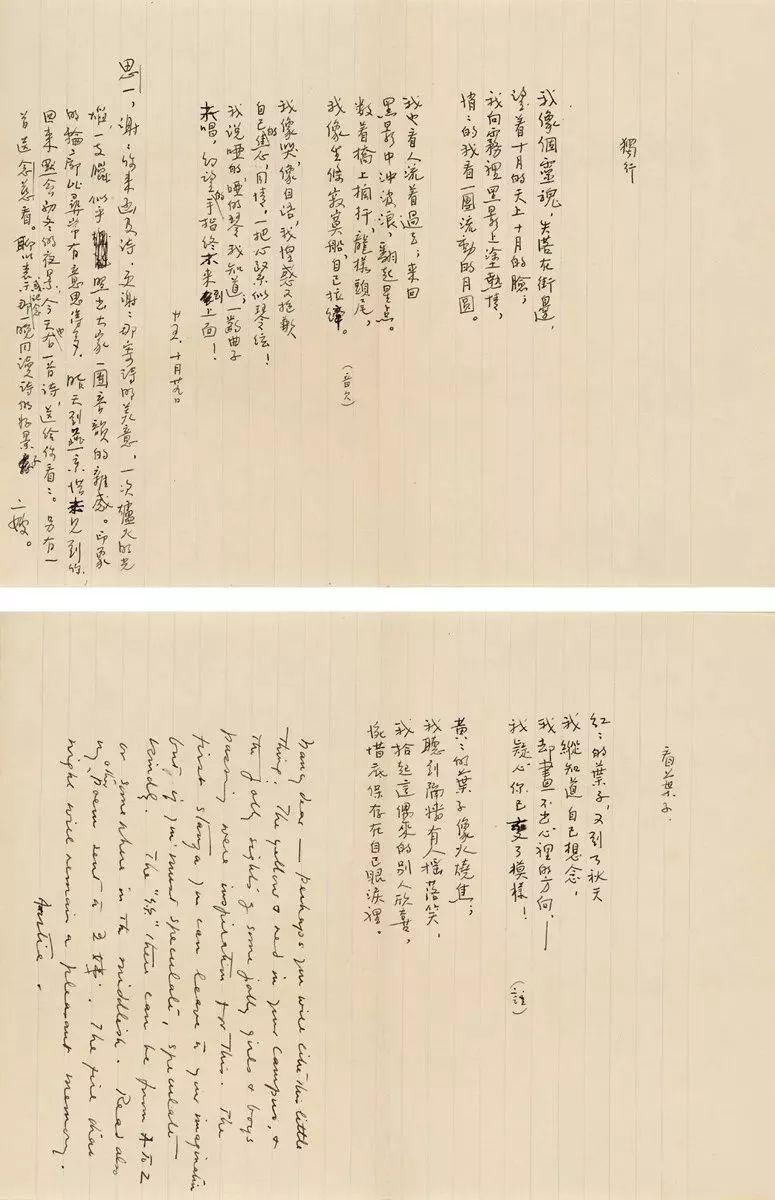 獨行
我像個靈魂，失落在街邊，
望着十月的天上十月的臉；
我向霧裡黑影上塗熱情，
悄悄的我看一團流動的月圓。
我也看人流着過去；來回
黑影中冲波浪，翻起星点。
数着橋上欄杆，龍樣頭尾，
我像坐條寂寞船，自己拉縴。
（音欠）
我像哭，像自語，我惶惑又抱歉
自己的焦心，同情，一把心緊似琴絃！
我说啞的，啞的琴我知道，一齣曲子
未唱，幻望的手指终未来到上面！
廿五、十月廿九日
思一，谢：你来函及诗；更谢：那寄诗的美意，一次壚火的光
燄一支臘
晚出大家一團音韻的雜感。印象
的輪廓比尋常有意思得多，昨天到燕京惜未見到你
回来點會初冬的夜景，今天也有一首詩，送给你看：。另有一
首送念慈看。聊以表示那一晚同讀詩的好景
二嫂。
看葉子
紅：的葉子，又到了秋天
我縱知道自己想念，
我却畫不出心裡的方向，——
我疑心你已變了模樣！
（註）
黄：的葉子像火燒焦；
我聽到隔墻有人摇落笑，
我拾起這偶來的别人欣喜，
惋惜底保存在自己眼淚裡。
dear — perhaps you will like this little
thing. The yellow & red in your campus, &
the jolly sights of some jolly girls & boys
passing were inspiration for this. The
first stanza you can leave to your imagination
but if you must speculate, speculate
kindly. The "你" there can be from A to Z
or somewhere in the middlish. Read also
my other poem sent to
The fire
night will remain a pleasant memory.